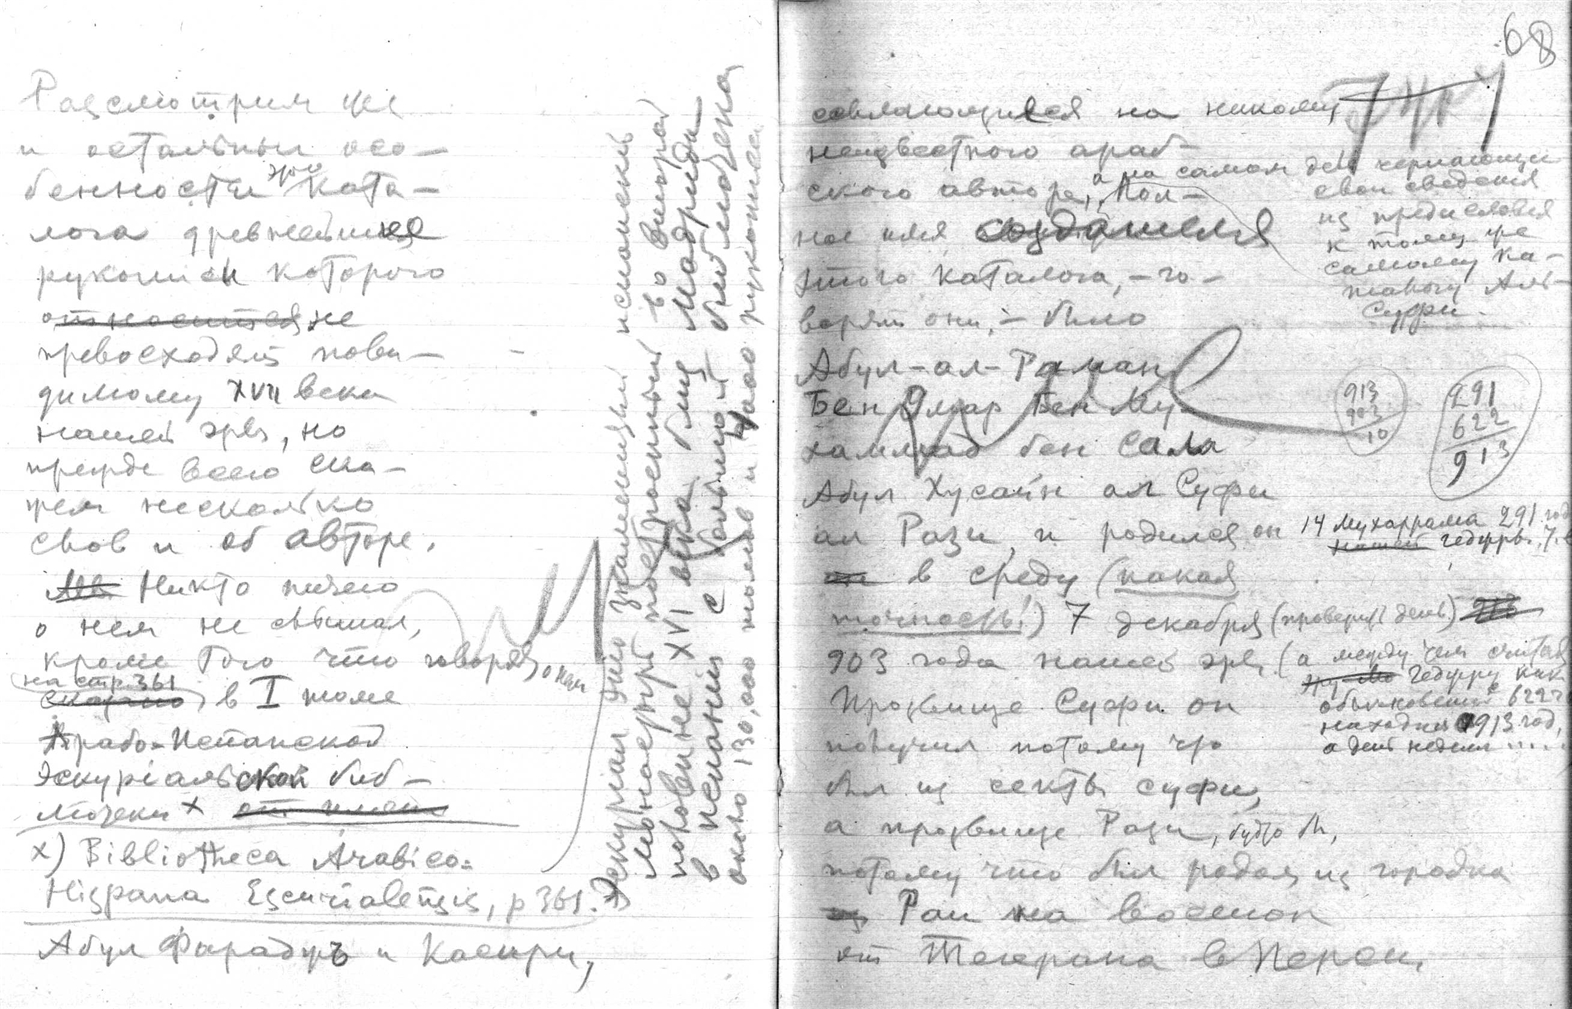 Рассмотрим же
и остальныя осо-
бенности этого ката-
лога древнейшие
рукописи которого
относится не
превосходят пови-
димому XVII века
нашей эры, но
прежде всего ска-
жем несколько
слов и об авторе.
Никто ничего
о нем не слышал,
кроме того что говорят, о нем
на стр. 361
скорно в I томе
Арабо-Испанской
Эскуріальской биб-
лиотеки x
x) Bibliotheca Arabico-
Hispana Escurialensis, p 361.
Абул Фарадуръ и Касири,
Эскуриал это знаменитый испанский
монастырь построенный во второй
половине XVI века близ Мадрида
в Испании с большой библиотекой
около 130,000 томов и 4000 рукописей
68
ссылающиеся на никому
неизвестного араб-
ского автора, а на самом деле черпающие
свои сведения
из предисловия
к тому же
самому ка-
талогу Аль-
Суфи.
Пол-
ное имя создателя
этого каталога, – го-
ворят они, – было
Абул-ал-Раман
Бен Омар Бен Му-
хаммад бен Сала
Абул Хусайн ал Суфи
913
903
10
291
622
913
ал Рази, и родился он 14 Мухаррама 291 год
нашей Гедџры. т.е.
в среду (какая
точность!) 7 декабря (проверить день)
903 года нашей эры (а между тем считая
Геджру как
обыкновенно с 622 г
находим 913 год,
а день недели .....
Прозвище Суфи он
получил потому что
был из секты суфи,
а прозвище Рази, будто бы,
потому что был родом из городка
Раи на восток
от Тегерана в Персии.